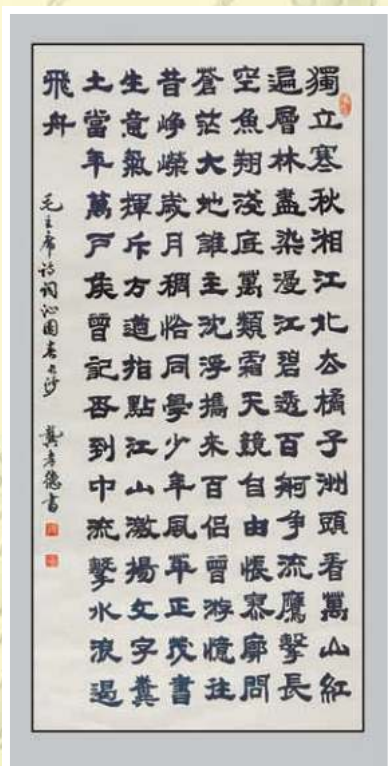 獨立寒秋湘江北去橘子洲頭看萬山紅
遍層林盡染漫江碧透百舸争流鷹擊長
空魚翔淺底萬類霜天競自由悵寥廓問
蒼茫大地誰主沈浮攜來百侣曾游憶往
昔崢嶸歲月稠恰同學少年風華正茂書
生意氣揮斥方遒指點江山激揚文字糞
土當年萬戶侯曾記否到中流擊水浪遏
飛舟
毛主席诗词沁園春长沙 龔孝德書